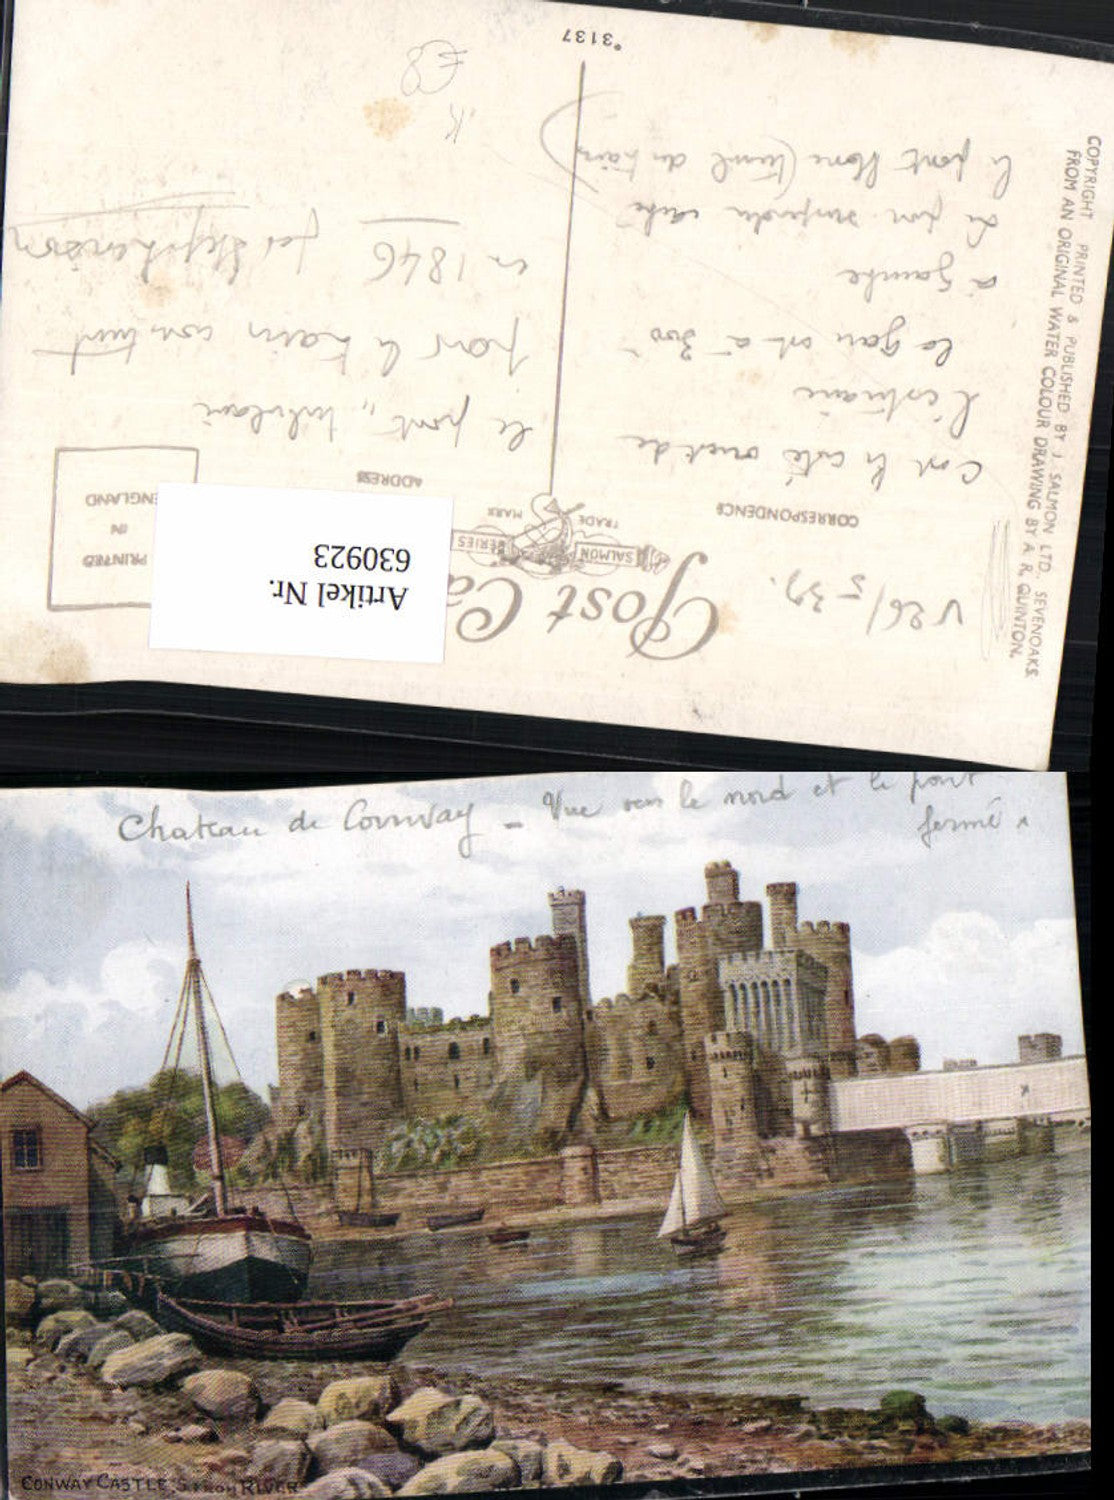 *3137
Post Ca
SALMON SERIES
TRADE MARK
CORRESPONDENCE
ADDRESS
PRINTED
IN
ENGLAND
Artikel Nr.
630923
COPYRIGHT PRINTED & PUBLISHED BY J. SALMON LTD., SEVENOAKS.
FROM AN ORIGINAL WATER COLOUR DRAWING BY A. R. QUINTON.
V26/5-39.
C'est le côté ouest de
l'estuaire
la gare est à 300
à gauche
le pont blanc (tunnel du train)
le pont "tubulaire
pour le train construit
en 1846 par Stephenson
K
£8
Chateau de Conway - Vue vers le nord et le pont
fermé
CONWAY CASTLE, S. FROM RIVER